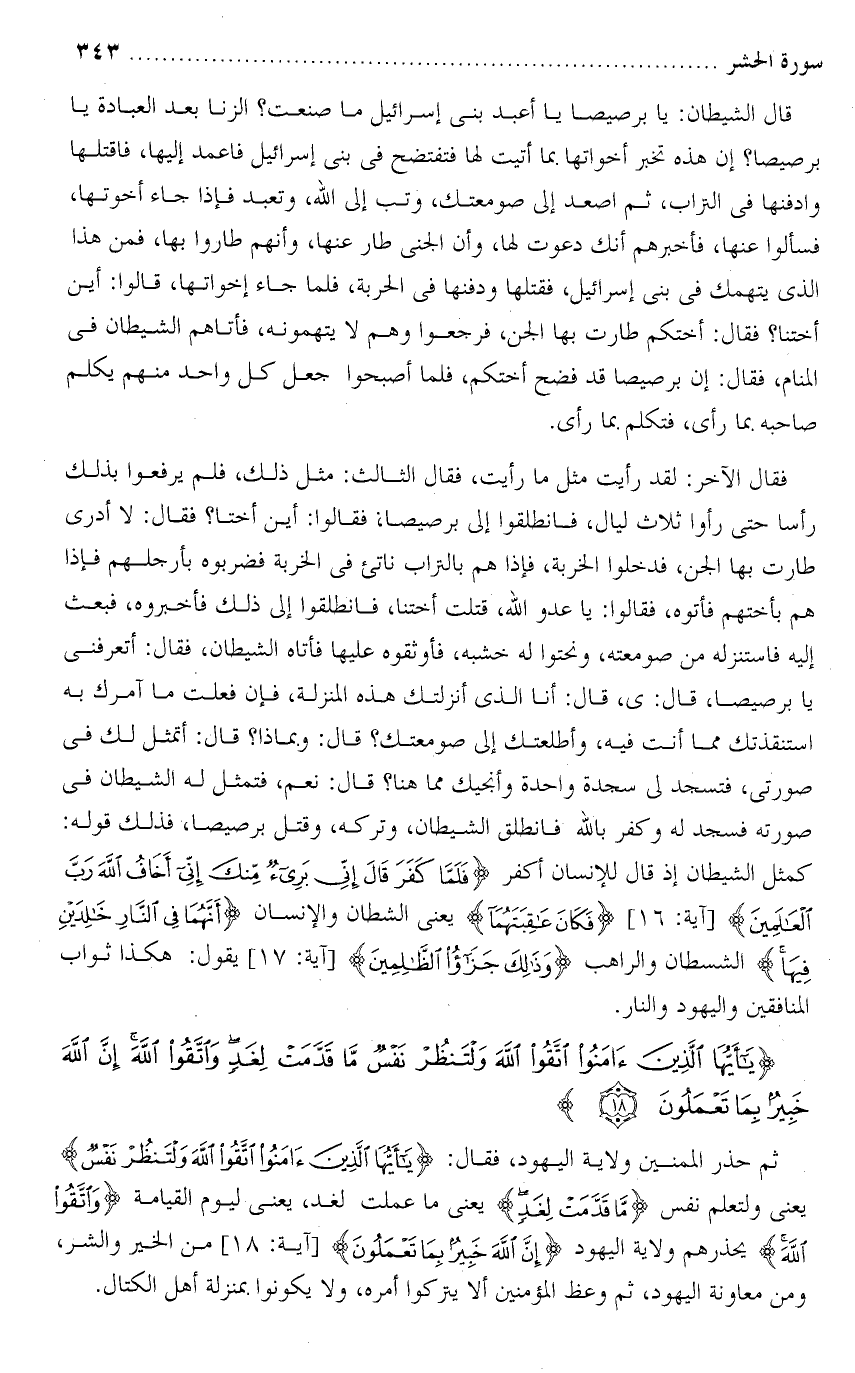 سورة الحشر ................................................................ ٣٤٣
قال الشيطان: يا برصيصا يا أعبد بنى إسرائيل ما صنعت؟ الزنا بعد العبادة يا
برصيصا؟ إن هذه تخبر أخواتها بما أتيت لها فتفتضح فى بنى إسرائيل فاعمد إليها، فاقتلها
وادفنها فى التراب، ثم اصعد إلى صومعتك، وتب إلى الله، وتعبد فإذا جاء أخوتها،
فسألوا عنها، فأخبرهم أنك دعوت لها، وأن الجنى طار عنها، وأنهم طاروا بها، فمن هذا
الذى يتهمك فى بنى إسرائيل، فقتلها ودفنها فى الخربة، فلما جاء إخواتها، قالوا: أين
أختنا؟ فقال: أختكم طارت بها الجن، فرجعوا وهم لا يتهمونه، فأتاهم الشيطان فى
المنام، فقال: إن برصيصا قد فضح أختكم، فلما أصبحوا جعل كل واحد منهم يكلم
صاحبه بما رأى، فتكلم بما رأى.
فقال الآخر: لقد رأيت مثل ما رأيت، فقال الثالث: مثل ذلك، فلم يرفعوا بذلك
رأسا حتى رأوا ثلاث ليال، فانطلقوا إلى برصيصا، فقالوا: أين أختا؟ فقال: لا أدرى
طارت بها الجن، فدخلوا الخربة، فإذا هم بالتراب ناتئ فى الخربة فضربوه بأرجلهم فإذا
هم بأختهم فأتوه، فقالوا: يا عدو الله، قتلت أختنا، فانطلقوا إلى ذلك فأخبروه، فبعث
إليه فاستنزله من صومعته، ونحتوا له خشبه، فأوثقوه عليها فأتاه الشيطان، فقال: أتعرفنى
يا برصيصا، قال: ى، قال: أنا الذى أنزلتك هذه المنزلة، فإن فعلت ما آمرك به
استنقذتك مما أنت فيه، وأطلعتك إلى صومعتك؟ قال: وبماذا؟ قال: أتمثل لك فى
صورتى، فتسجد لى سجدة واحدة وأنجيك مما هنا؟ قال: نعم، فتمثل له الشيطان فى
صورته فسجد له وكفر بالله فانطلق الشيطان، وتركه، وقتل برصيصا، فذلك قوله:
كمثل الشيطان إذ قال للإنسان أكفر ﴿فَلَمَّا كَفَرَ قَالَ إِنِّى بَرِىٓءٌ مِّنكَ إِنِّىٓ أَخَافُ ٱللَّهَ رَبَّ
ٱلْعَٰلَمِينَ﴾ [آية: ١٦] ﴿فَكَانَ عَٰقِبَتَهُمَآ﴾ يعنى الشطان والإنسان ﴿أَنَّهُمَا فِى ٱلنَّارِ خَٰلِدَيْنِ
فِيهَا﴾ الشسطان والراهب ﴿وَذَٰلِكَ جَزَٰٓؤُا۟ ٱلظَّٰلِمِينَ﴾ [آية: ١٧] يقول: هكذا ثواب
المنافقين واليهود والنار.
﴿يَٰٓأَيُّهَا ٱلَّذِينَ ءَامَنُوا۟ ٱتَّقُوا۟ ٱللَّهَ وَلْتَنظُرْ نَفْسٌ مَّا قَدَّمَتْ لِغَدٍ ۖ وَٱتَّقُوا۟ ٱللَّهَ ۚ إِنَّ ٱللَّهَ
خَبِيرٌۢ بِمَا تَعْمَلُونَ ١٨﴾
ثم حذر الممنين ولاية اليهود، فقال: ﴿يَٰٓأَيُّهَا ٱلَّذِينَ ءَامَنُوا۟ ٱتَّقُوا۟ ٱللَّهَ وَلْتَنظُرْ نَفْسٌ﴾
يعنى ولتعلم نفس ﴿مَّا قَدَّمَتْ لِغَدٍ ۖ﴾ يعنى ما عملت لغد، يعنى ليوم القيامة ﴿وَٱتَّقُوا۟
ٱللَّهَ ۚ﴾ يحذرهم ولاية اليهود ﴿إِنَّ ٱللَّهَ خَبِيرٌۢ بِمَا تَعْمَلُونَ﴾ [آية: ١٨] من الخير والشر،
ومن معاونة اليهود، ثم وعظ المؤمنين ألا يتركوا أمره، ولا يكونوا بمنزلة أهل الكتال.